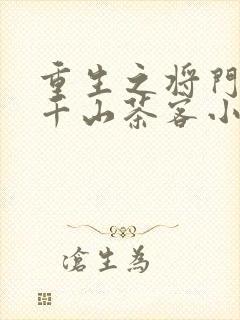 重生之将门
千山茶客小
滄生為